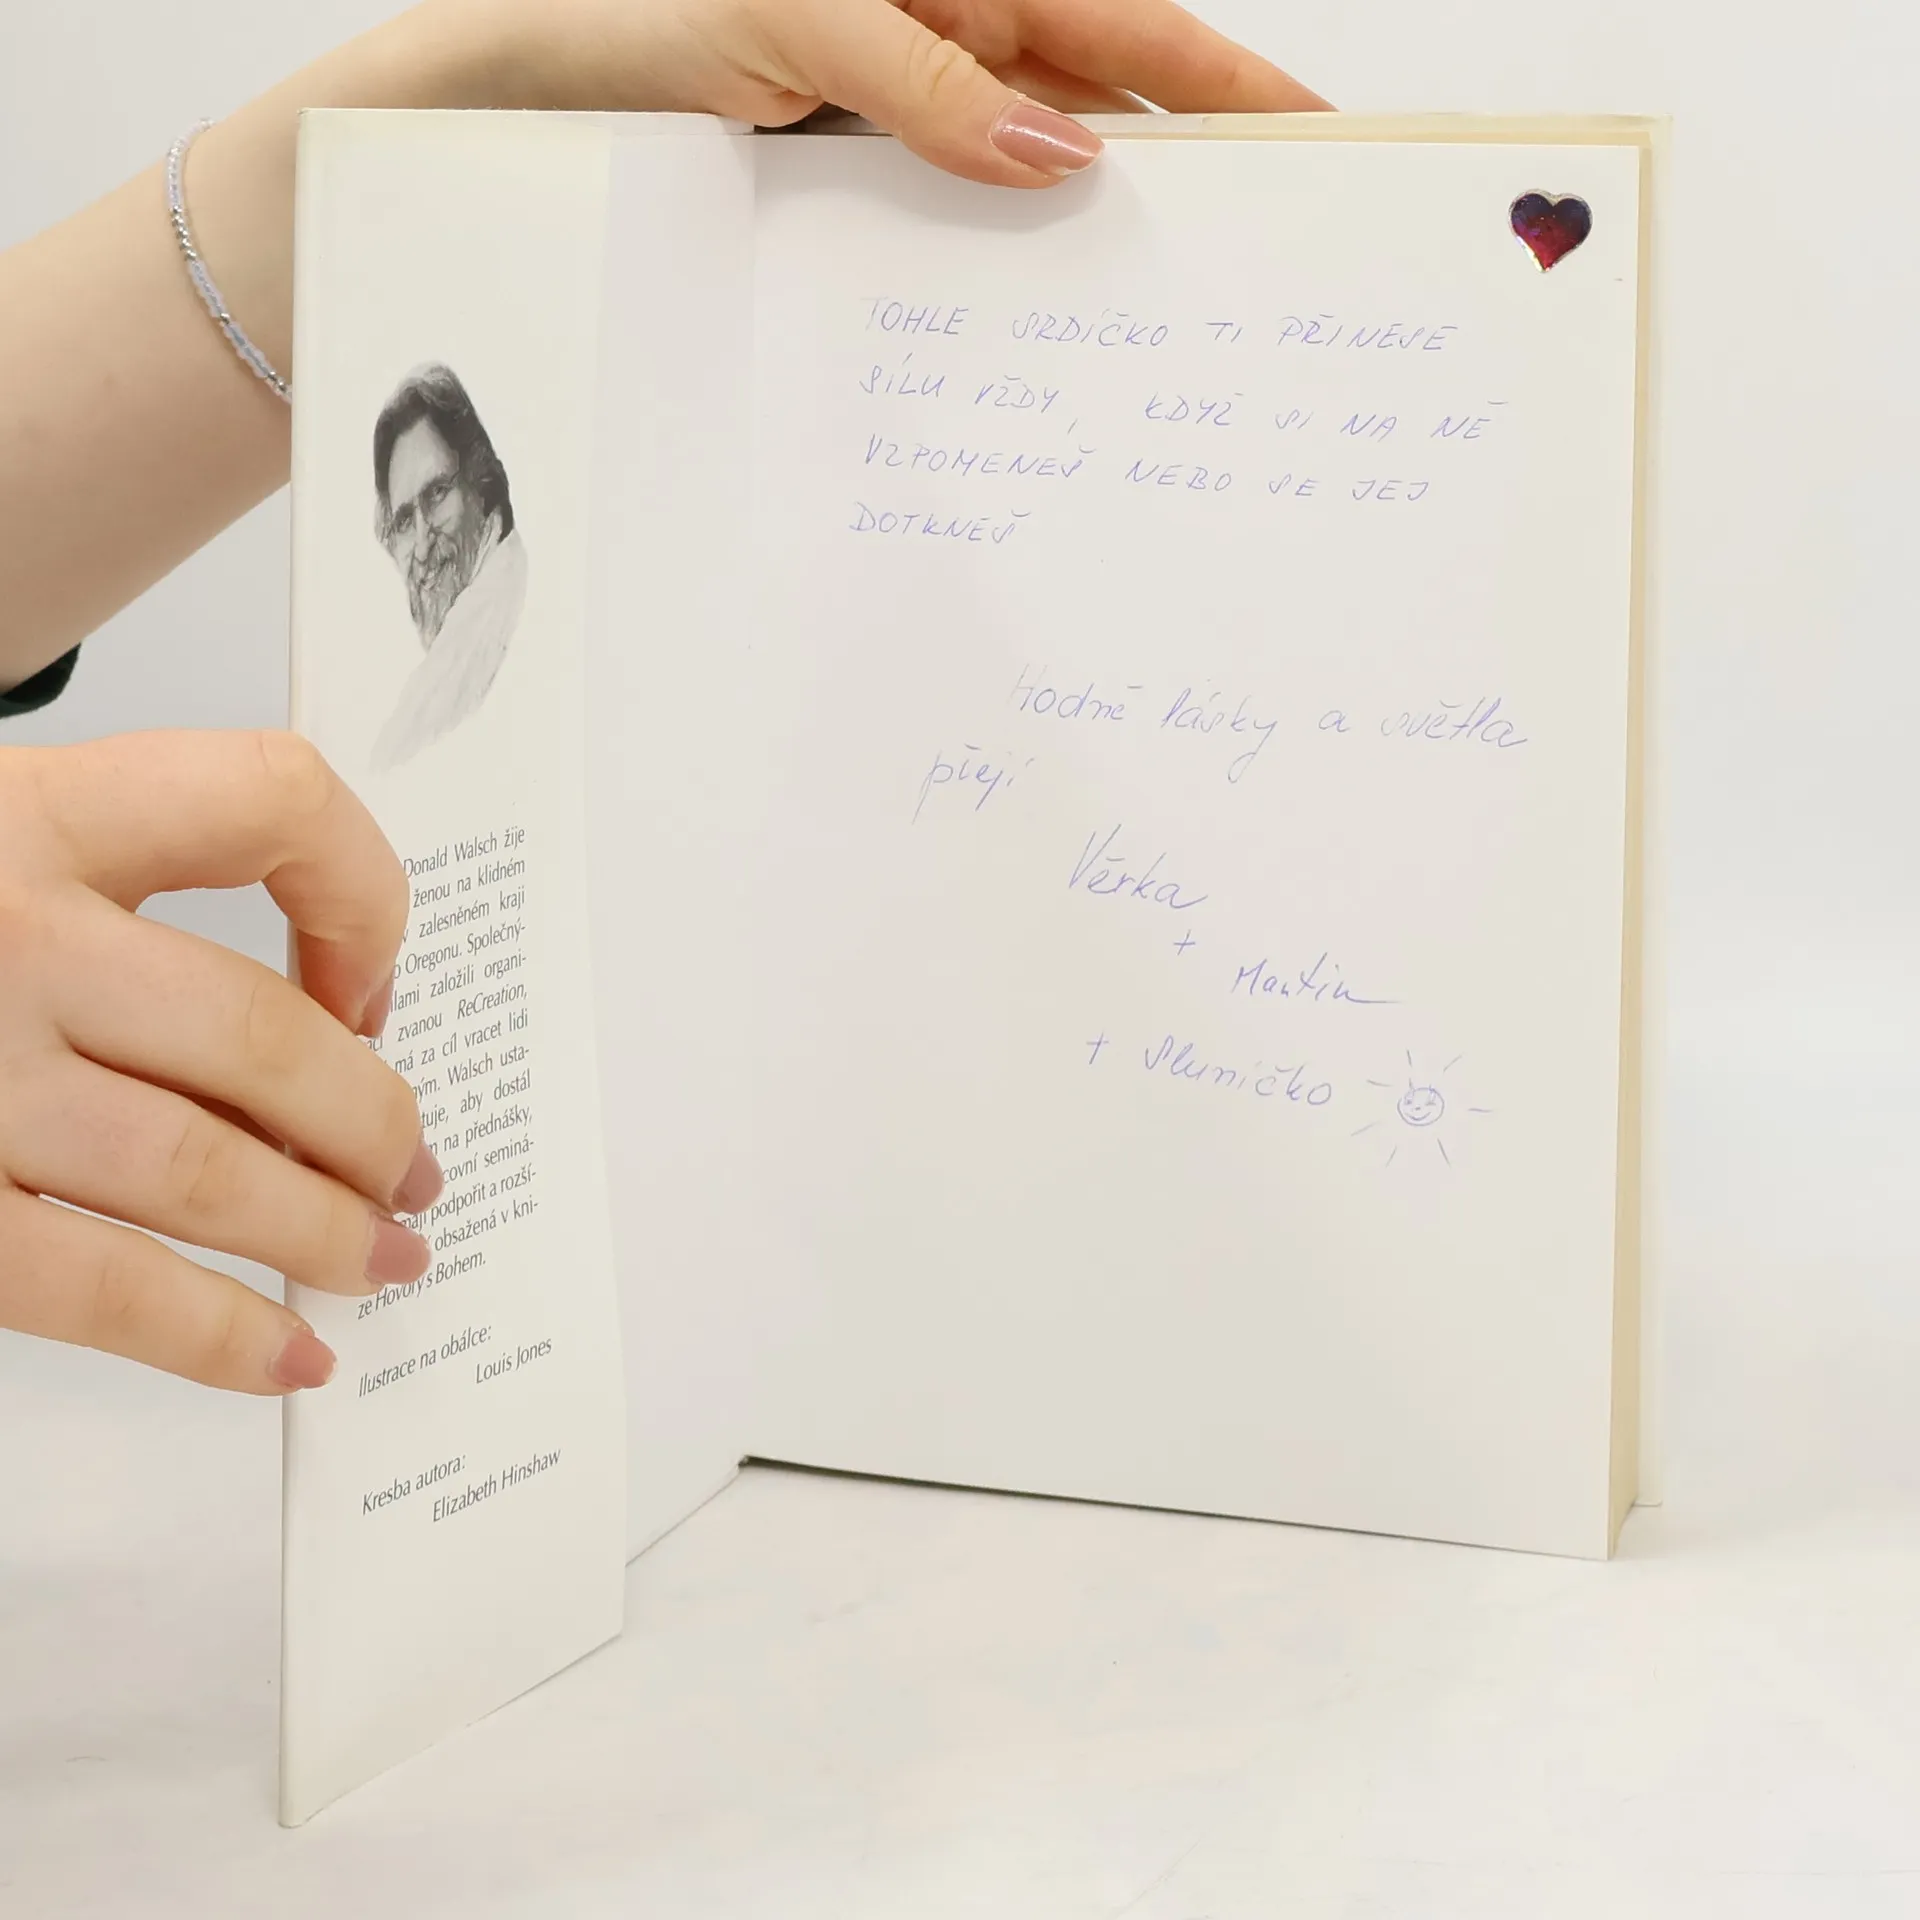 Donald Walsch žije
ženou na klidném
v zalesněném kraji
Oregonu. Společný-
založili organi-
zvanou ReCreation,
má za cíl vracet lidi
Walsch usta-
aby dostál
na přednášky,
seminá-
podpořit a rozší-
obsažená v kni-
ze Hovory s Bohem.
Ilustrace na obálce:
Louis Jones
Kresba autora:
Elizabeth Hinshaw
TOHLE SRDÍČKO TI PŘINESE
SÍLU VŽDY, KDYŽ SI NA NĚ
VZPOMENEŠ NEBO SE JEJ
DOTKNEŠ
Hodně lásky a světla
přejí
Věrka
+
Martin
+ Sluníčko